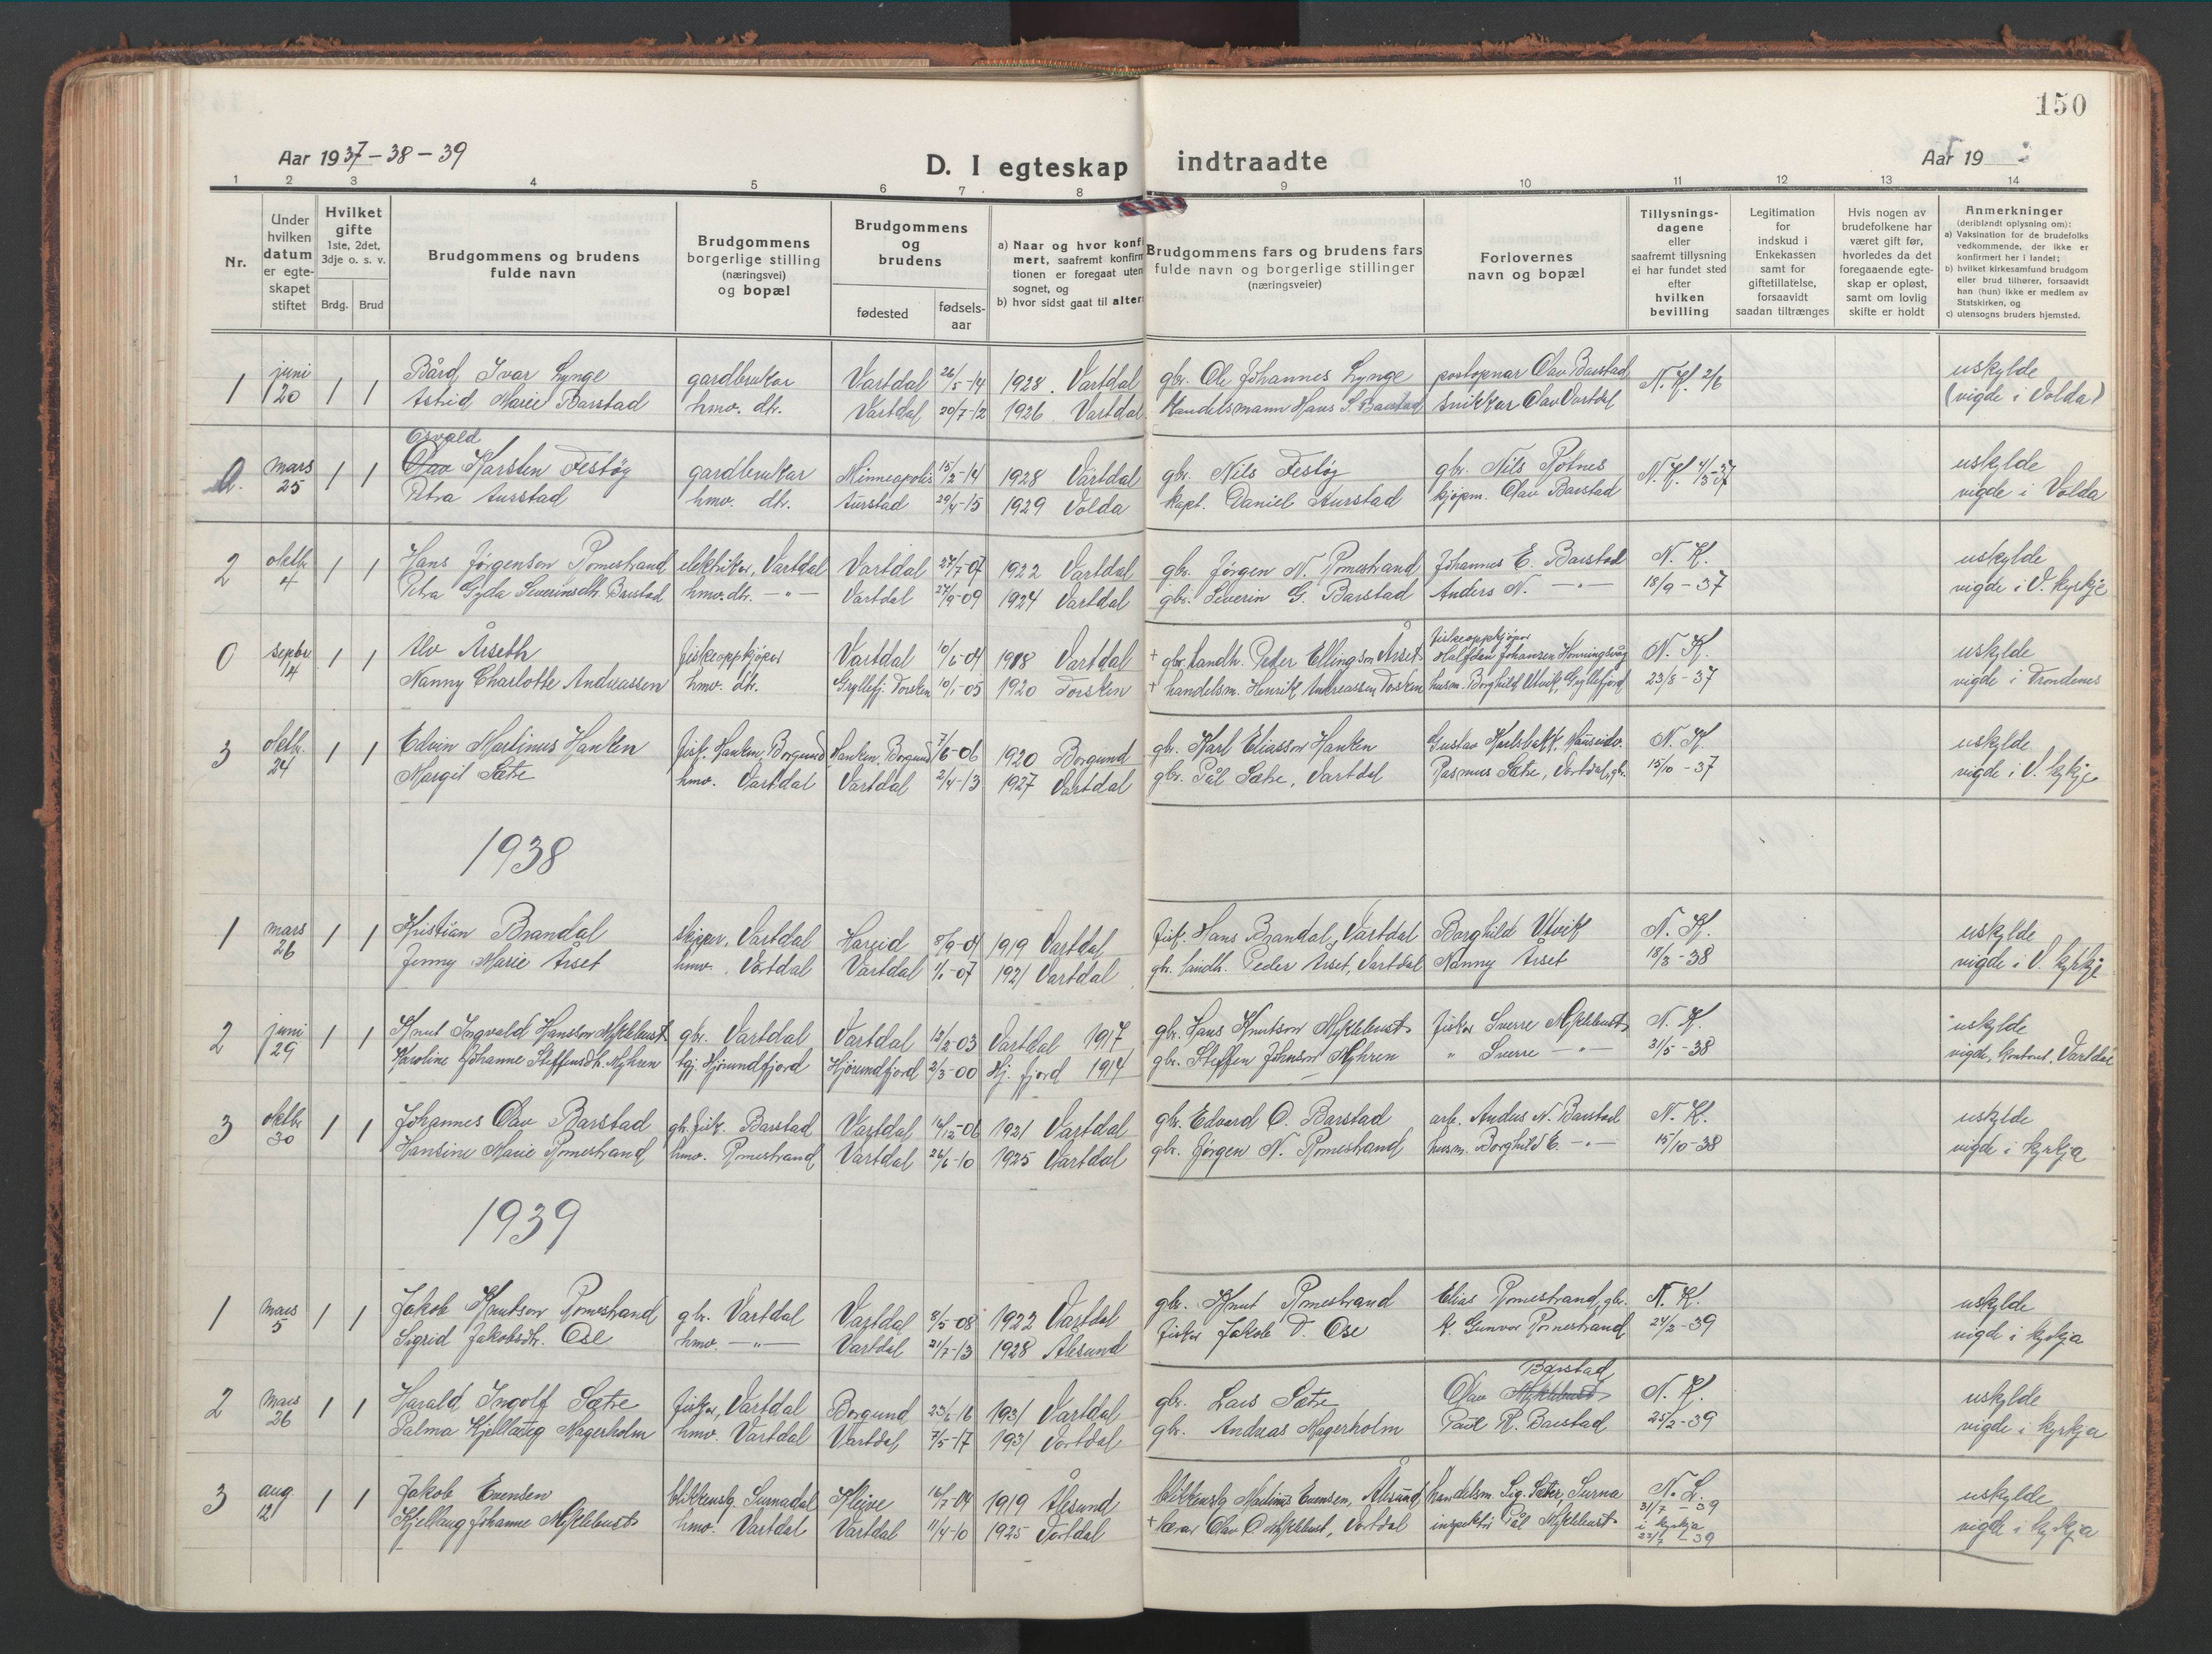 150
Aar 1937-38-39
D. I egteskap indtraadte
Aar 19
1 2 3 4 5 6 7 8 9 10 11 12 13 14
Nr.
Under hvilken datum er egte-skapet stiftet
Hvilket gifte 1ste, 2det, 3dje o. s. v.
Brdg. Brud
Brudgommens og brudens fulde navn
Brudgommens borgerlige stilling (næringsvei) og bopæl
Brudgommens og brudens
fødested
fødsels-aar
a) Naar og hvor konfi
mert, saafremt konfirm
tionen er foregaat uten
sognet, og
b) hvor sidst gaat til alter
Brudgommens fars og brudens fars fulde navn og borgerlige stillinger (næringsveier)
Forlovernes navn og bopæl
Tillysnings-dagene eller saafremt tillysning ei har fundet sted efter hvilken bevilling
Legitimation for indskud i Enkekassen samt for giftetillatelse, forsaavidt saadan tiltrænges
Hvis nogen av brudefolkene har været gift før, hvorledes da det foregaaende egte-skap er opløst, samt om lovlig skifte er holdt
Anmerkninger
(deriblandt oplysning om):
a) Vaksination for de brudefolks vedkommende, der ikke er konfirmert her i landet;
b) hvilket kirkesamfund brudgom eller brud tilhører, forsaavidt han (hun) ikke er medlem av Statskirken, og
c) utensogns bruders hjemsted.
1 juni 20 1 1 Bård Ivar Lynge gardbrukar Vartdal 26/5-14 1928. Vartdal gbr. Ole Johannes Lynge postopnar Olav Barstad N. K. 2/6 uskylde
Astrid Marie Barstad hmv. dtr. Vartdal 20/7-12 1926. Vartdal Handelsmann Hans S. Barstad snikkar Olav Vartdal (vigde i Volda)
mars 25 1 1 Osvald
Olav Karsten Festøy gardbrukar Minneapolis 15/2-14 1928 Vartdal gbr. Nils Festøy gbr. Nils Rotnes N. K. 4/3-37 uskylde
Petra Aurstad hmv. dtr. Aurstad 29/4-15 1929 Volda kapt. Daniel Aurstad kjøpm. Olav Barstad vigde i Volda
2 oktbr. 4 1 1 Hans Jørgenson Romestrand elektriker, Vartdal Vartdal 27/7-07 1922 Vartdal gbr. Jørgen N. Romestrand Johannes E. Barstad N. K. uskylde
Petra Gyda Severinsdtr. Barstad hmv. dtr. —"— Vartdal 27/9-09 1924 Vartdal gbr. Severin G. Barstad Anders N. —"— 18/9-37 vigde i V. kyrkje
0 septbr 14 1 1 Alv Årseth fiskeoppkjøper Vartdal 10/6-04 1918 Vartdal + gbr. landh. Peter Ellingson Årset fiskeoppkjøper
Halfdan Johansen Honningsvåg N. K. uskylde
Nanny Charlotte Andreassen hmv. dtr. Gryllefj. Torsken 10/1-05 1920 Torsken + handelsm. Henrik Andreassen Torsken husm. Borghild Utvik, Gryllefjord 23/8-37 vigde i Trondenes
3 oktb. 24 1 1 Edvin Martinus Hanken fisk. Hanken, Borgund Hanken, Borgund 7/6-06 1920 Borgund gbr. Karl Eliasson Hanken Gustav Karlsbakk, N. K. uskylde
Margit Sætre hmv. Vartdal Vartdal 2/4-13 1927 Vartdal gbr. Pål Sætre, Vartdal Rasmus Sætre, Vartdal, gbr. 15/10-37 vigde i V. kyrkje
1938
1 mars 26 1 1 Kristian Brandal skipper, Vartdal Hareid 8/9-04 1919 Vartdal fisk. Hans Brandal, Vartdal Borghild Utvik N. K. uskylde
Jenny Marie Årset hmv. Vartdal Vartdal 1/1-07 1921 Vartdal gbr. landh. Peder Årset, Vartdal Nanny Årset 18/3-38 vigde i V. kyrkje
2 juni 29 1 1 Knut Ingvald Hansson Myklebust gbr. Vartdal Vartdal 12/2-03 Vartdal 1917 gbr. Hans Knutson Myklebust fisker Sverre Myklebust N. K. uskylde
Karoline Johanne Steffensdtr. Myhren tgj. Hjørundfjord Hjørundfjord 2/3-00 Hj. fjord 1914 gbr. Steffen Johnson Myhren " Sverre —"— 31/5-38 vigde, kontoret, Vartdal
3 oktbr 30 1 1 Johannes Olav Barstad gb. fisk. Barstad Vartdal 14/12-06 1921 Vartdal gbr. Edvard O. Barstad arb. Anders N. Barstad N. K. uskylde
Hansine Marie Romestrand hmv. Romestrand Vartdal 26/6-10 1925 Vartdal gbr. Jørgen N. Romestrand husm. Borghild E. —"— 15/10-38 vigde i kyrkja
1939
1 mars 5 1 1 Jakob Knutson Romestrand gbr. Vartdal Vartdal 3/5-08 1922 Vartdal gbr. Knut Romestrand Elias Romestrand, gbr. N. K. uskylde
Sigrid Jakobsdtr. Ose hmv. —"— Vartdal 21/7-13 1928 Ålesund fisker Jakob D. Ose k. Gunvor Romestrand 24/2-39 vigde i kyrkja
2 mars 26 1 1 Harald Ingolf Sætre fisker, Vartdal Borgund 23/6-16 1931 Vartdal gbr. Lars Sætre Barstad
Olav Myklebust N. K. uskylde
Palma Kjellaug Magerholm hmv. Vartdal Vartdal 7/5-17 1931 Vartdal gbr. Andreas Magerholm Paul R. Barstad 25/2-39 vigde i kyrkja
3 aug. 12 1 1 Jakob Evensen blikkenslg. Surnadal Kleive 16/7-04 1919 Ålesund blikkenslg. Martinus Evensen, Ålesund handelsm. Sig. Sæter, Surna N. L. 31/7-39 uskylde
Kjellaug Johanne Myklebust hmv. Vartdal Vartdal 11/4-10 1925 Vartdal + lærar Olav O. Myklebust, Vartdal inspektør Pål Myklebust i kyrkja 22/7-39 vigde i kyrkja